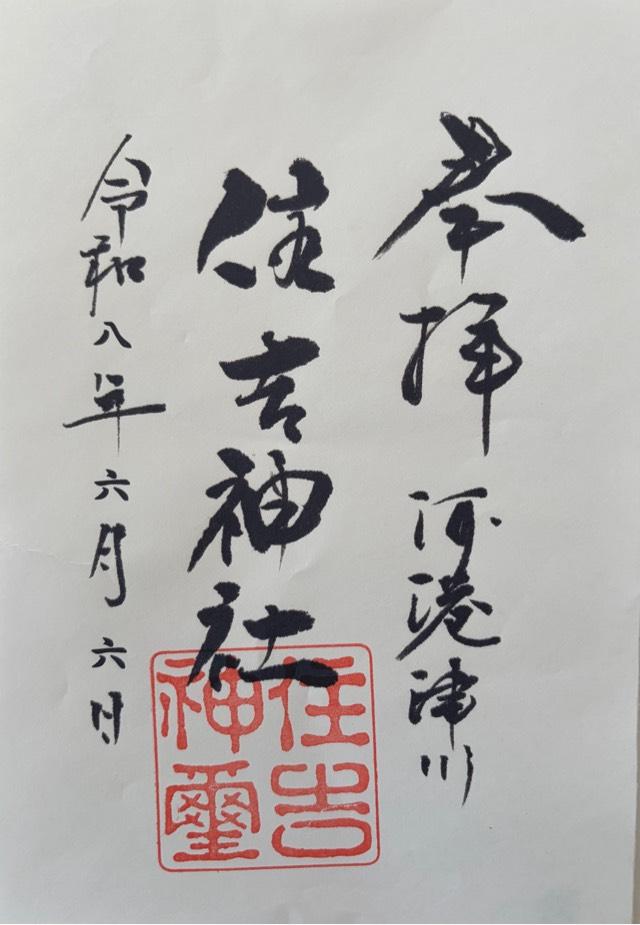 奉拝 河港津川
住吉神社
令和八年六月六日
住吉
神璽